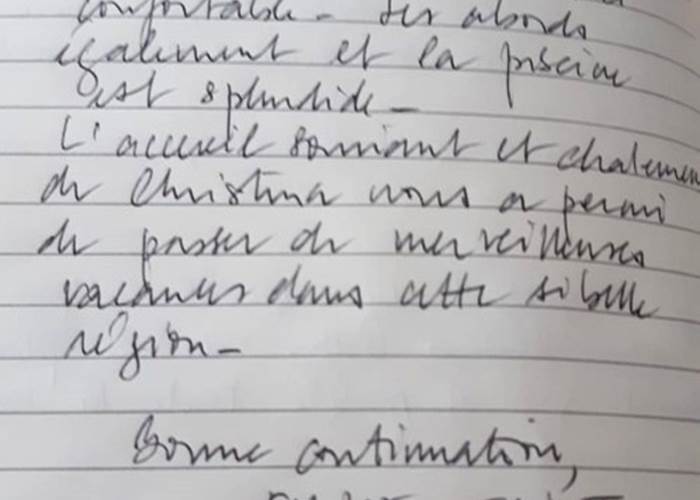 confortable - Ses abords
également et la piscine
est splendide -
L'accueil souriant et chaleureu
de Christina nous a permi
de passer de merveilleuses
vacances dans cette si belle
région -
Bonne continuation,